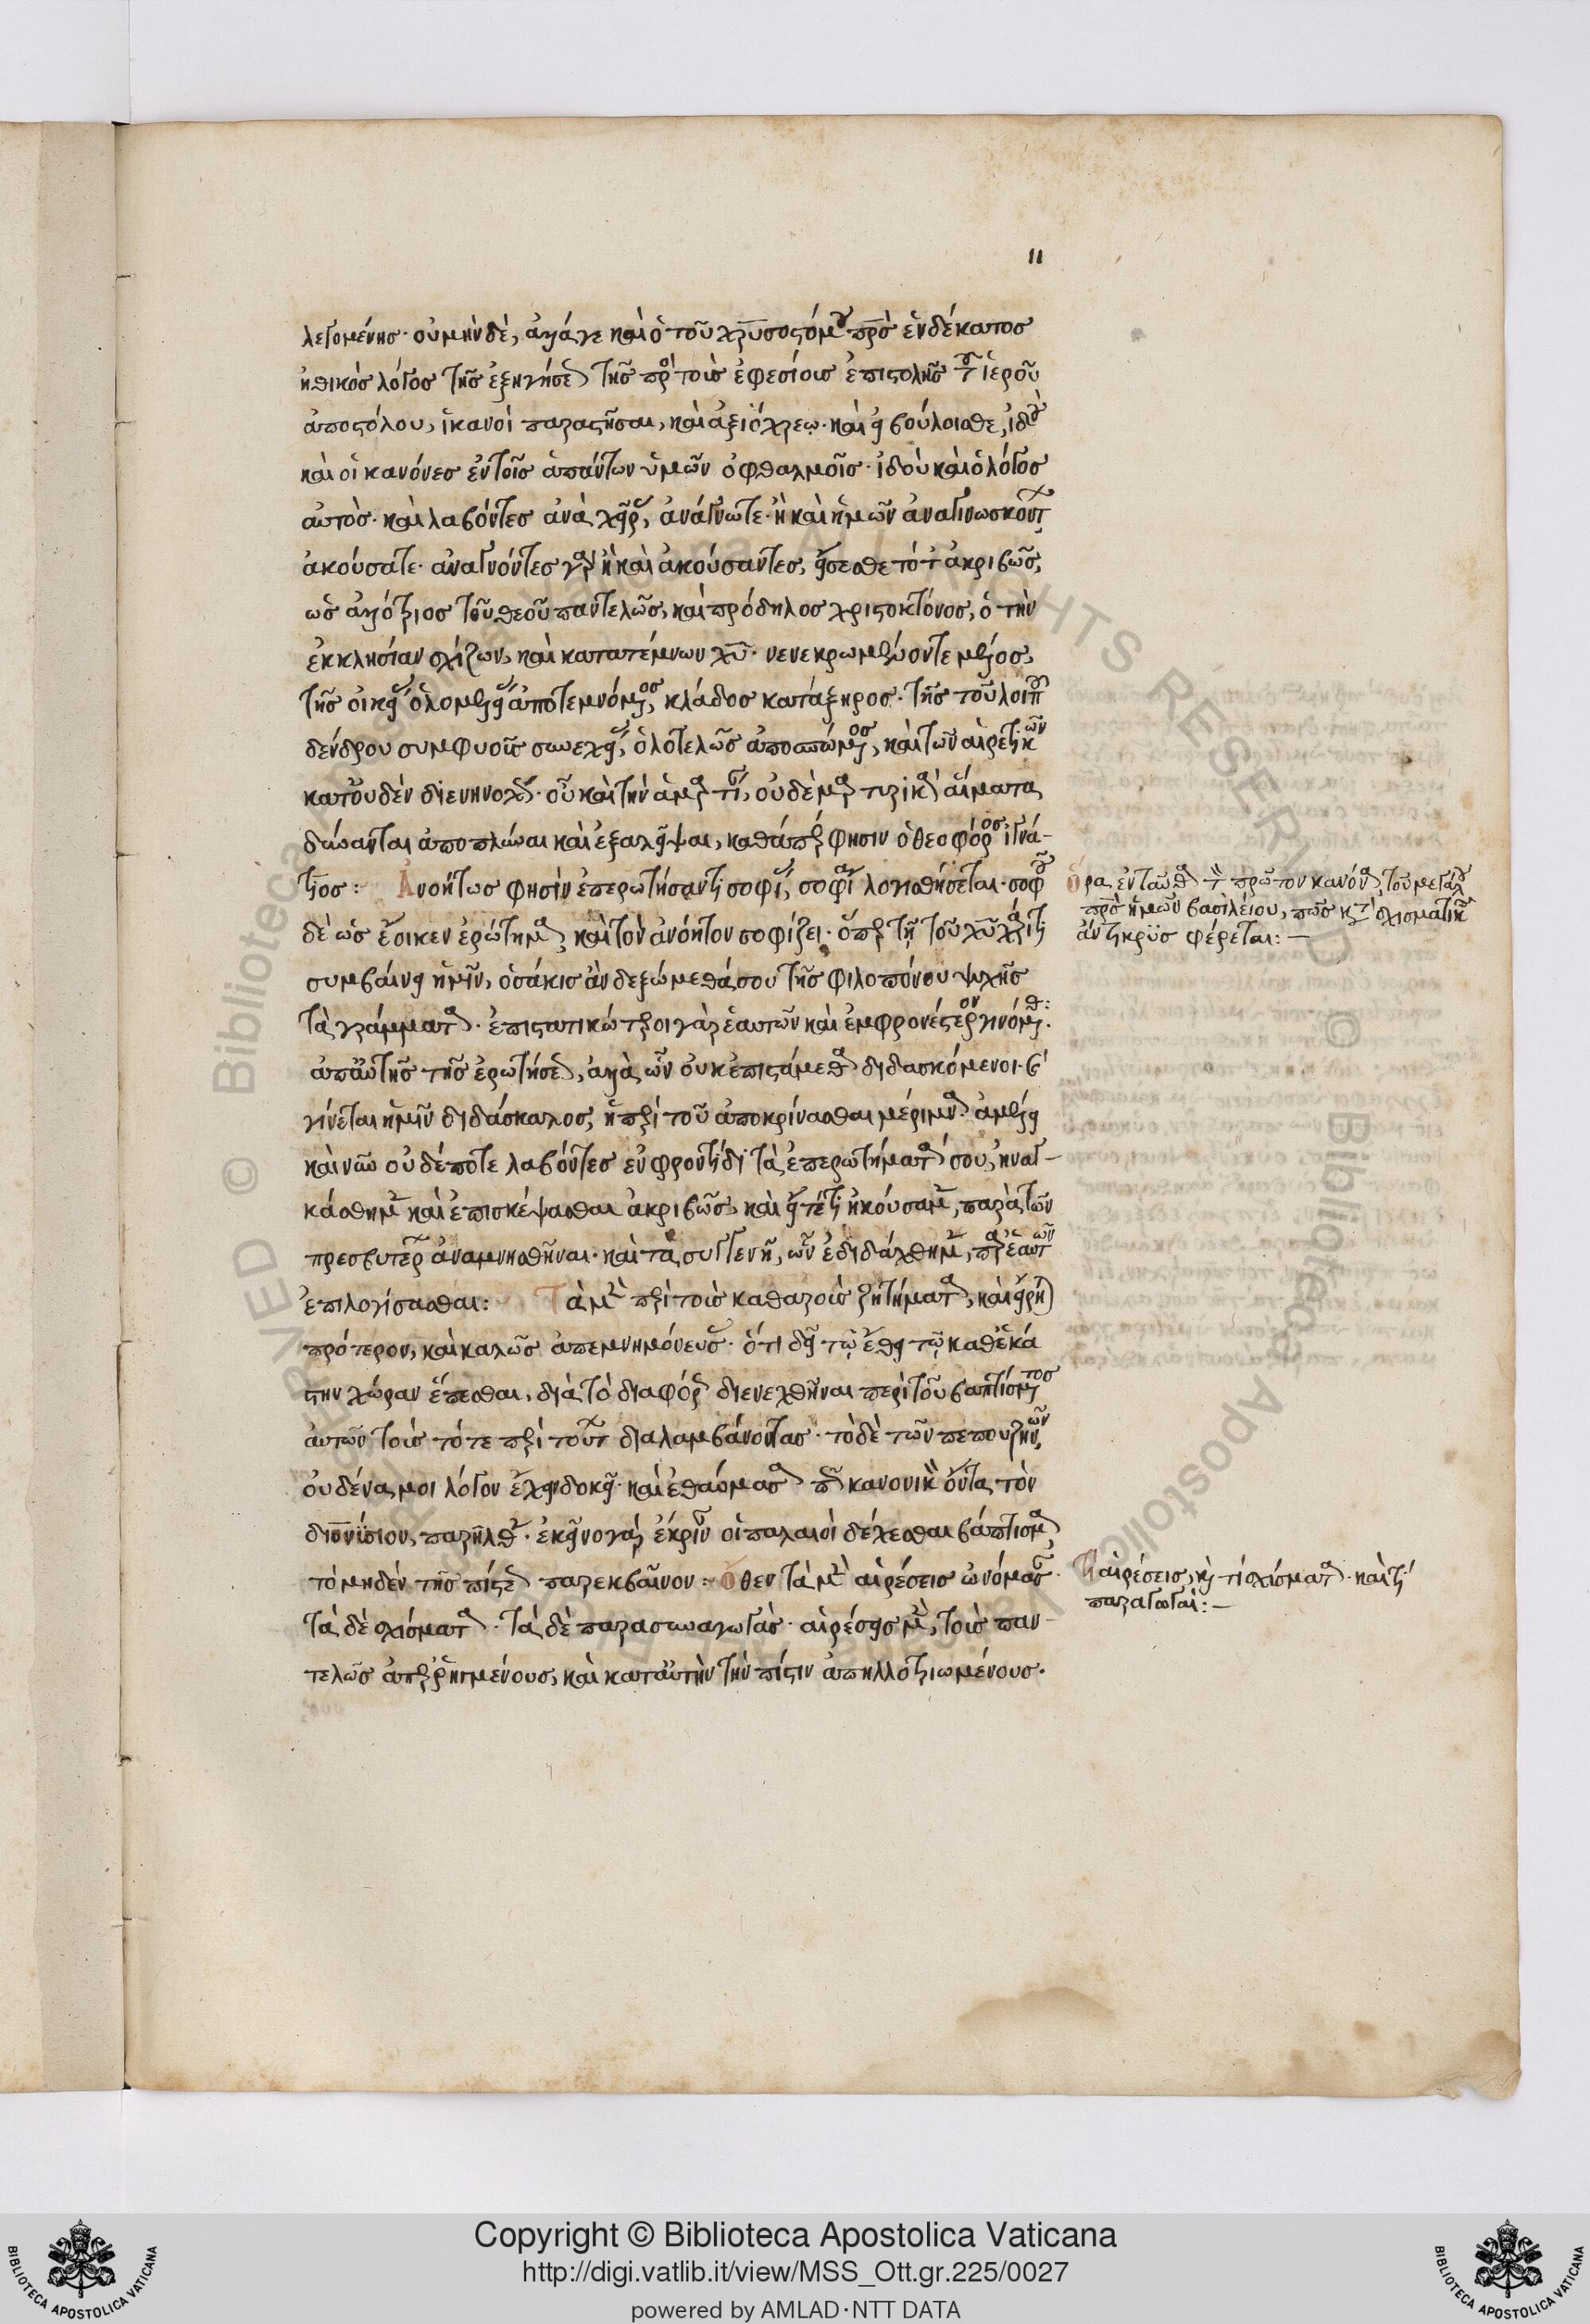 11
λεγομένης· οὐ μὴν δὲ, ἀλλά γε καὶ ὁ τοῦ χρυσοστόμου πρὸς ἑνδέκατος
ἠθικὸς λόγος τῆς ἐξηγήσεως τῆς πρὸς τοὺς ἐφεσίους ἐπιστολῆς τοῦ ἱεροῦ
ἀποστόλου, ἱκανοὶ παραστῆσαι, καὶ ἀξιόχρεω· καὶ εἰ βούλοισθε, ἰδοὺ
καὶ οἱ κανόνες ἐν τοῖς ἁπάντων ὑμῶν ὀφθαλμοῖς· ἰδοὺ καὶ ὁ λόγος
αὐτός· καὶ λαβόντες ἀνὰ χεῖρας, ἀνάγνωτε· ἢ καὶ ἡμῶν ἀναγινωσκόντων
ἀκούσατε· ἀναγνόντες γὰρ ἢ καὶ ἀκούσαντες, εἴσεσθε τότε ἀκριβῶς,
ὡς ἀλλότριος τοῦ θεοῦ παντελῶς, καὶ πρόδηλος χριστοκτόνος, ὁ τὴν
ἐκκλησίαν σχίζων, καὶ κατατέμνων χυ· νενεκρωμένον τε μέλος,
τῆς οἰκείας ὁλομελείας ἀποτεμνόμενος, κλάδος κατάξηρος· τῆς τοῦ λοιποῦ
δένδρου συμφυοῦς συνεχείας, ὁλοτελῶς ἀποσπώμενος, καὶ τῶν αἱρετικῶν
κατ' οὐδὲν διενηνοχώς· οὗ καὶ τὴν ἁμαρτίαν, οὐδὲ μαρτυρικὰ αἵματα
δύνανται ἀποπλύναι καὶ ἐξαλεῖψαι, καθάπερ φησιν ὁ θεοφόρος ἰγνά-
τιος: Ἀνοήτως φησὶν ἐπερωτήσαντι σοφίαν, σοφία λογισθήσεται· σοφοῦ
δὲ ὡς ἔοικεν ἐρώτημα, καὶ τὸν ἀνόητον σοφίζει· ὅπερ τῇ τοῦ χυ χάριτι
συμβαίνει ἡμῖν, ὁσάκις ἂν δεξώμεθά σου τῆς φιλοπόνου ψυχῆς
τὰ γράμματα· ἐπιστατικώτεροι γὰρ ἑαυτῶν καὶ ἐμφρονέστερον γινόμεθα:
ἀπ' αὐτῆς τῆς ἐρωτήσεως, ἀλλὰ ὧν οὐκ ἐπιστάμεθα διδασκόμενοι· καὶ
γίνεται ἡμῖν διδάσκαλος, ἡ περὶ τοῦ ἀποκρίνασθαι μέριμνα· ἀμέλει
καὶ νῦν οὐδέποτε λαβόντες ἐν φροντίδι τὰ ἐπερωτήματά σου, ἠναγ-
κάσθημεν καὶ ἐπισκέψασθαι ἀκριβῶς, καὶ εἴ τέ τι ἠκούσαμεν, παρὰ τῶν
πρεσβυτέρων ἀναμνησθῆναι· καὶ τὰ συγγενῆ, ὧν ἐδιδάχθημεν, παρ' ἑαυτῶν
ἐπιλογίσασθαι: Τὰ μὲν περὶ τοὺς καθαροὺς ζητήματα, καὶ εἴρηται
πρότερον, καὶ καλῶς ἀπεμνημόνευσας· ὅτι δεῖ τῷ ἔθει τῷ καθ' ἑκά
στην χώραν ἕπεσθαι, διὰ τὸ διαφόρως διενεχθῆναι περὶ τοῦ βαπτίσματος
αὐτῶν τοὺς τότε περὶ τούτων διαλαμβάνοντας· τὸ δὲ τῶν πεπουζηνῶν,
οὐδένα μοι λόγον ἔχειν δοκεῖ· καὶ ἐθαύμασα πῶς κανονικὸν ὄντα τὸν
διονύσιον, παρῆλθεν· ἐκεῖνο γὰρ ἔκριναν οἱ παλαιοὶ δέχεσθαι βάπτισμα,
τὸ μηδὲν τῆς πίστεως παρεκβαῖνον: Ὅθεν τὰ μὲν αἱρέσεις ὠνόμασαν·
τὰ δὲ σχίσματα· τὰ δὲ παρασυναγωγάς· αἱρέσεις μὲν, τοὺς παν-
τελῶς ἀπερρηγμένους, καὶ κατ' αὐτὴν τὴν πίστιν ἀπηλλοτριωμένους·
Ὅρα ἐνταῦθα τὸν πρῶτον κανόνα, τοῦ μεγάλου
πατρὸς ἡμῶν βασιλείου, πῶς κατὰ τῶν σχισματικῶν
ἀντικρὺς φέρεται:—
Τί αἱρέσεις, καὶ τί σχίσματα· καὶ τί
παραγωγαί:—